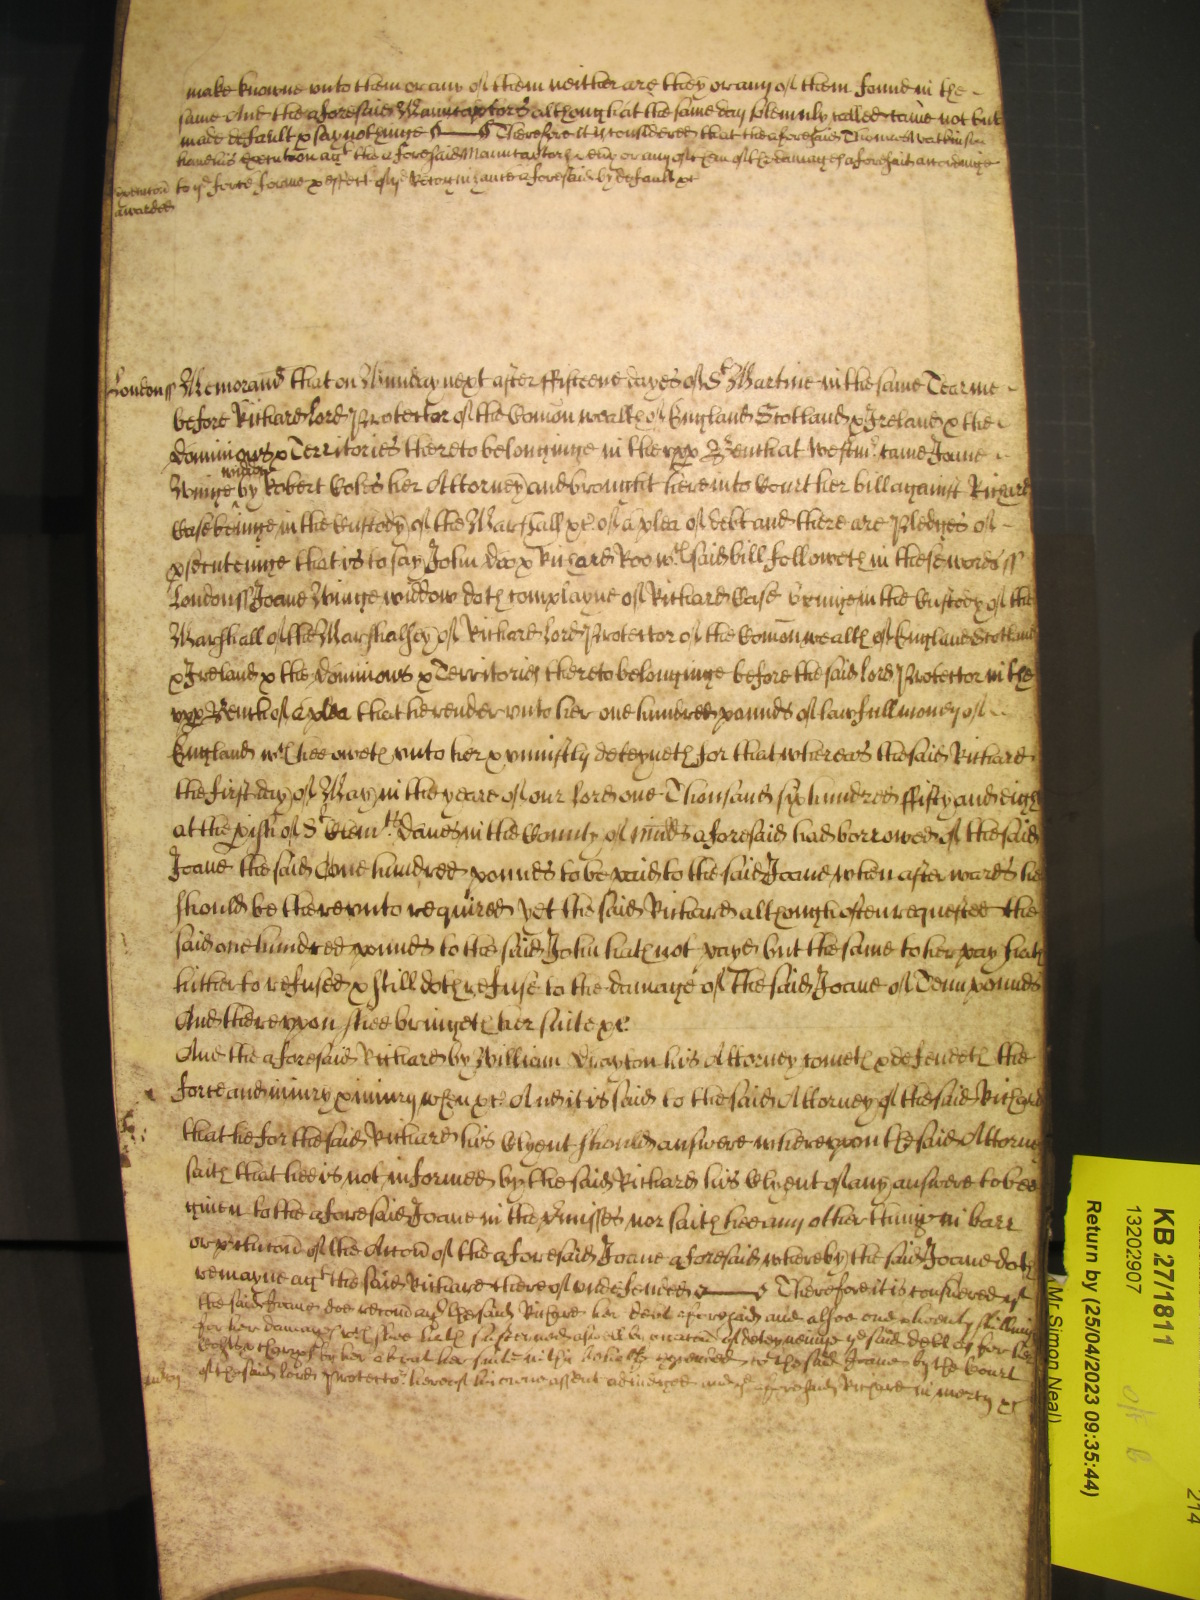 make knowne vnto them or any of them neither are they or any of them found in the
same And the aforesaid Manucaptors although at the same day solemnly called came not but
made default & say nothinge Therefore it is considered that the aforesaid Thomas Watkinson
have his execucon agt the aforesaid Manucaptors & eny or any of them of the damages aforesaid accordinge
execucon to ye force forme & effect of ye Recognizance aforesaid by default &c
awarded
Londonss Memorand that on Munday next after ffifteene dayes of St Martine in the same Tearme
before Richard Lord Protector of the Comon wealth of England Scotland & Ireland & the
Dominions & Territories thereto belonginge in the vpp Bench at Westmr came Joane
widdow
Winge by Robert Coles her Attorney and brought here into Court her bill against Richard
Case beinge in the Custody of the Marshall &c of a plea of debt and there are Pledges of
psecuteinge that is to say John Doo & Richard Roo wch said bill followeth in these words ss
Londonss Joane Winge widdow doth complayne of Richard Case beinge in the Custody of the
Marshall of the Marshalsey of Richard Lord Protector of the Comon wealth of England Scotland
& Ireland & the Dominions & Territories thereto belonginge before the said Lord Protector in the
vpp Bench of a plea that he render vnto her one hundred pounds of lawfull money of
England wch hee oweth vnto her & vniustly deteyneth for that whereas the said Richard
the first day of May in the yeare of our Lord one Thousand six hundred ffifty and eight
at the pish of St Clemts Danes in the County of Midds aforesaid had borrowed of the said
Joane the said One hundred pounds to be paid to the said Joane when afterwards hee
should be therevnto required yet the said Richard although often requested the
said one hundred pounds to the said John hath not payd but the same to her pay hath
hitherto refused & still doth refuse to the damage of the said Joane of Tenn pounds
And therevpon shee bringeth her suite &c
And the aforesaid Richard by William Drayton his Attorney cometh & defendeth the
force and iniury & iniury when &c And it is said to the said Attorney of the said Richard
that he for the said Richard his Clyent should answere wherevpon the said Attorney
saith that hee is not informed by the said Richard his Clyent of any answere to bee
given to the aforesaid Joane in the pmisses nor saith hee any other thinge in barr
or pclucon of the Accon of the aforesaid Joane aforesaid whereby the said Joane doth
remayne agt the said Richard thereof vndefended Therefore it is considered yt
the said Joane doe recou agt the said Richard her debt aforesaid and alsoe one & twenty shillings
for her damages wch shee hath susteyned aswell by occacon of deteyneinge ye said debt as for her
Costs & charges by her about her suite in this behalfe expended to the said Joane by the Court
of the said Lord Protector hereof with her owne assent adiudged and ye aforesaid Richard in mercy &c
KB 27/1811
13202907
Return by (25/04/2023 09:35:44)
Mr Simon Neal
214